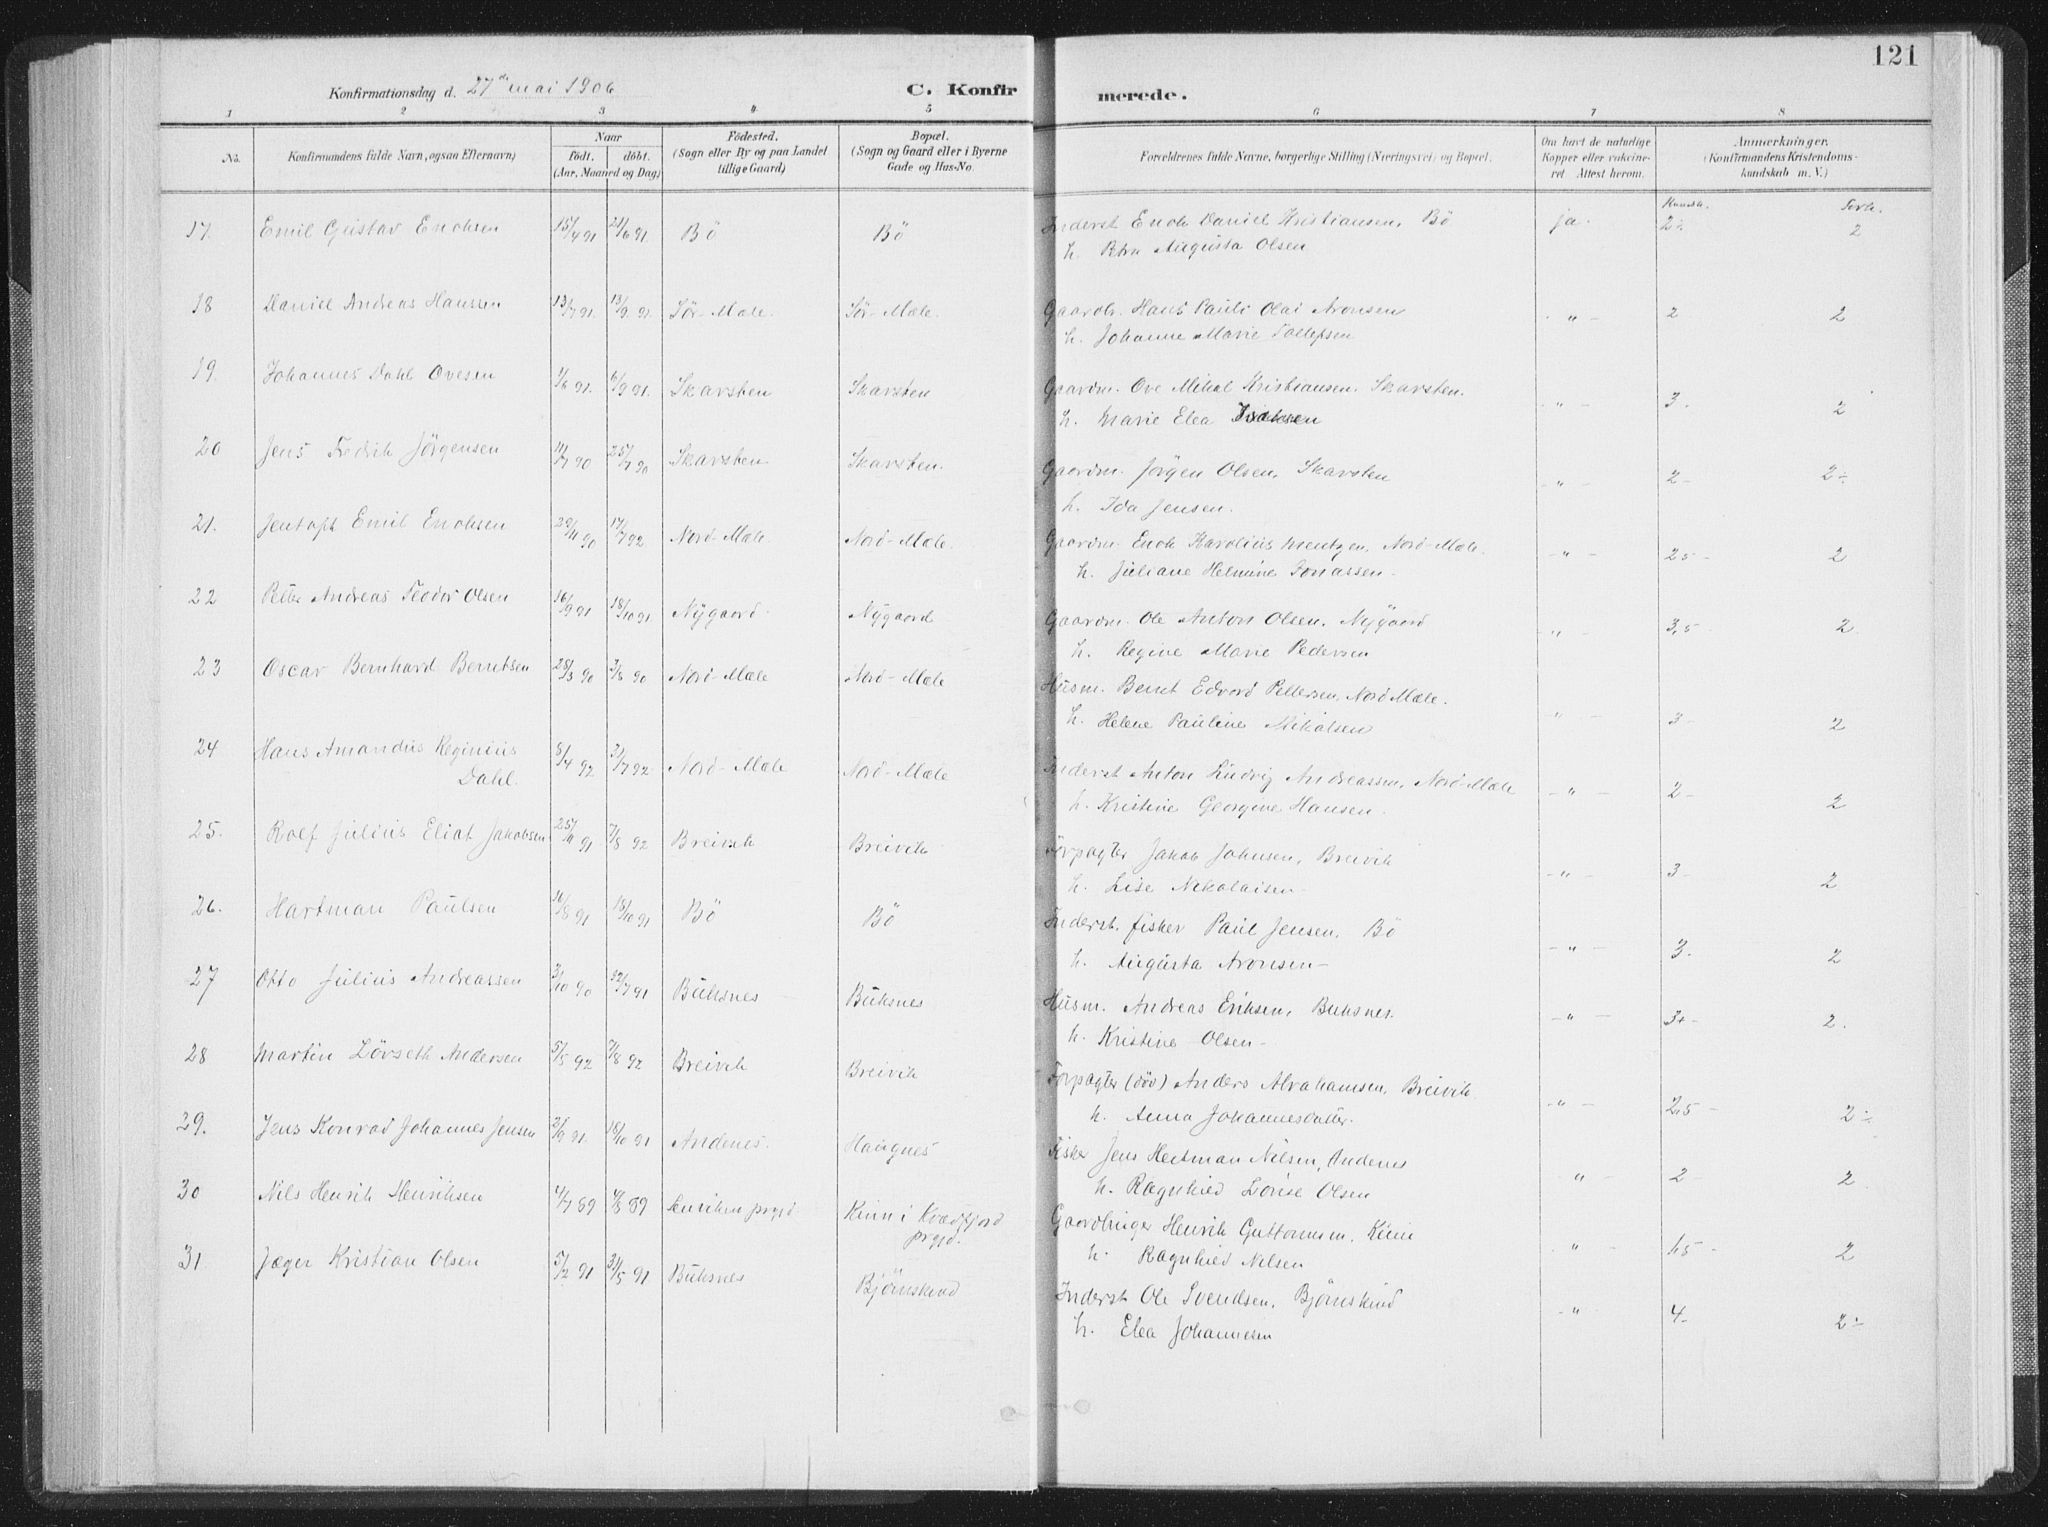 121
Konfirmationsdag d. 27de mai 1906 C. Konfirmerede.
1 2 3 4 5 6 7 8
No. Konfirmandens fulde Navn, ogsaa Efternavn) Naar födt. döbt. (Aar, Maaned og Dag) Födested. (Sogn eller By og paa Landet tillige Gaard) Bopæl. (Sogn og Gaard eller i Byerne Gade og Hus-No. Forældrenes fulde Navne, borgerlige Stilling (Næringsvei) og Bopæl. Om havt de naturlige Kopper eller vakcineret Attest herom. Anmærkninger. (Konfirmandens Kristendomskundskab m. V.)
Kundsk. Forh.
17. Emil Gustav Enoksen 15/4 91 21/6 91. Bö Bö Inderst Enok Daniel Kristiansen, Bö ja. 2 ÷ 2
h. Petra Augusta Olsen
18 Daniel Andreas Hanssen 13/7 91. 13/9 91. Sör-Mæle. Sör-Mæle. Gaardbr. Hans Pauli Olai Aronsen - " - 2 2
h. Johanne Marie Tollefsen
19. Johannes Dahl Ovesen 1/6 91. 6/9 91. Skarsten Skarsten Gaardm. Ove Mikal Kristiansen. Skarsten. - " - 3. 2
h. Marie Elea Isaksen
20 Jens Fredrik Jörgensen 11/7 90 25/7 90 Skarsten Skarsten. Gaardm. Jörgen Olsen, Skarsten - " - 2 - 2 ÷
h. Ida Jensen.
21. Jentoft Emil Enoksen 29/11 90 17/7 92 Nord-Mæle. Nord-Mæle. Gaardm. Enok Karolius Mentzen, Nord-Mæle. - " - 2 5 - 2
h. Juliane Helmine Jonassen -
22 Petter Andreas Teodor Olsen 16/9 91 18/10 91 Nygaard Nygaard Gaardm. Ole Anton Olsen, Nygaard " - 3,5 - 2
h. Regine Marie Pedersen
23 Oscar Bernhard Berntsen 28/3 90 3/8 90 Nord-Mæle Nord-Mæle Husm. Bernt Edvard Pettersen, Nord Mæle. " - 3 - 2
h. Helene Pauline Mikalsen
24 Hans Amandus Reginius 8/4 92 31/7 92 Nord-Mæle Nord-Mæle Inderst Anton Ludvig Andreassen, Nord-Mæle - " - 2 - 2
Dahl. h. Kristine Georgine Hansen.
25. Rolf Julius Eliot Jakobsen 25/11 91 7/8 92 Breivik Breivik Forpagter Jakob Johnsen, Breivik - " - 3 - 2
h. Lise Nikolaisen -
26. Hartman Paulsen 30/8 91 18/10 91 Bö Bö Inderst. fisker Paul Jensen, Bö - " - 3. 2
h. Augusta Aronsen -
27 Otto Julius Andreassen 3/10 90 12/7 91 Buksnes Buksnes Husm. Andreas Eriksen, Buksnes. - " - 3+ 2.
h. Kristine Olsen -
28 Martin Lövseth Andersen 5/5 92 7/8 92 Breivik Breivik Forpagter (död) Anders Abrahamsen, Breivik - " - 2,5 - 2 ÷
h. Anna Johannesdatter.
29. Jens Konrad Johannes Jensen 2/9 91. 18/10 91 Andenes. Haugnes Fisker Jens Hertman Nilsen, Andenes " - 2 - 2
h. Ragnhild Lovise Olsen
30 Nils Henrik Henriksen 4/7 89 4/8 89 prgjd Kinn i Kvædfjord Gaardbruger Henrik Guttormsen, Kinn " - 1,5 - 2
prgjd. h. Ragnhild Nilsen
31 Jæger Kristian Olsen 5/2 91 31/5 91 Buksnes Björnskind Inderst Ole Svendsen, Björnskind " 4 - 2 ÷
h. Elea Johannesen